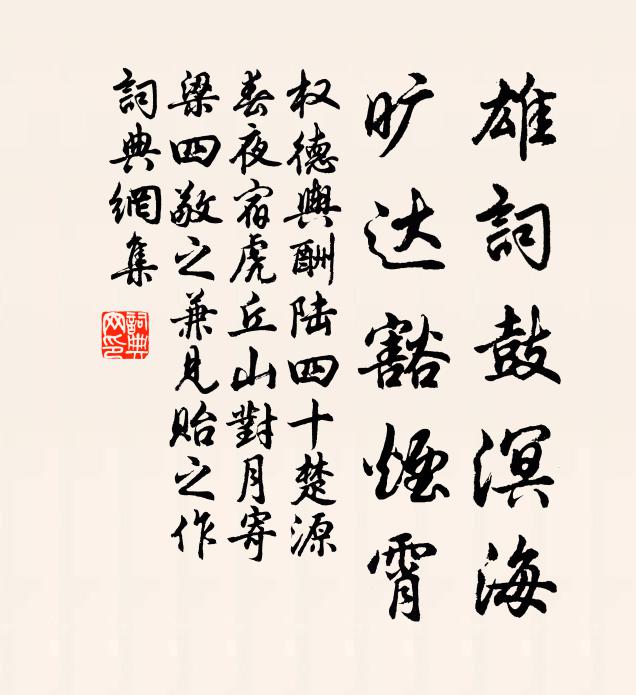 雄詞鼓溟海
旷达豁煙霄
权德輿酬陆四十楚源
春夜宿虎丘山對月寄
梁四敬之兼見貽之作
詞典網集
詞典网印